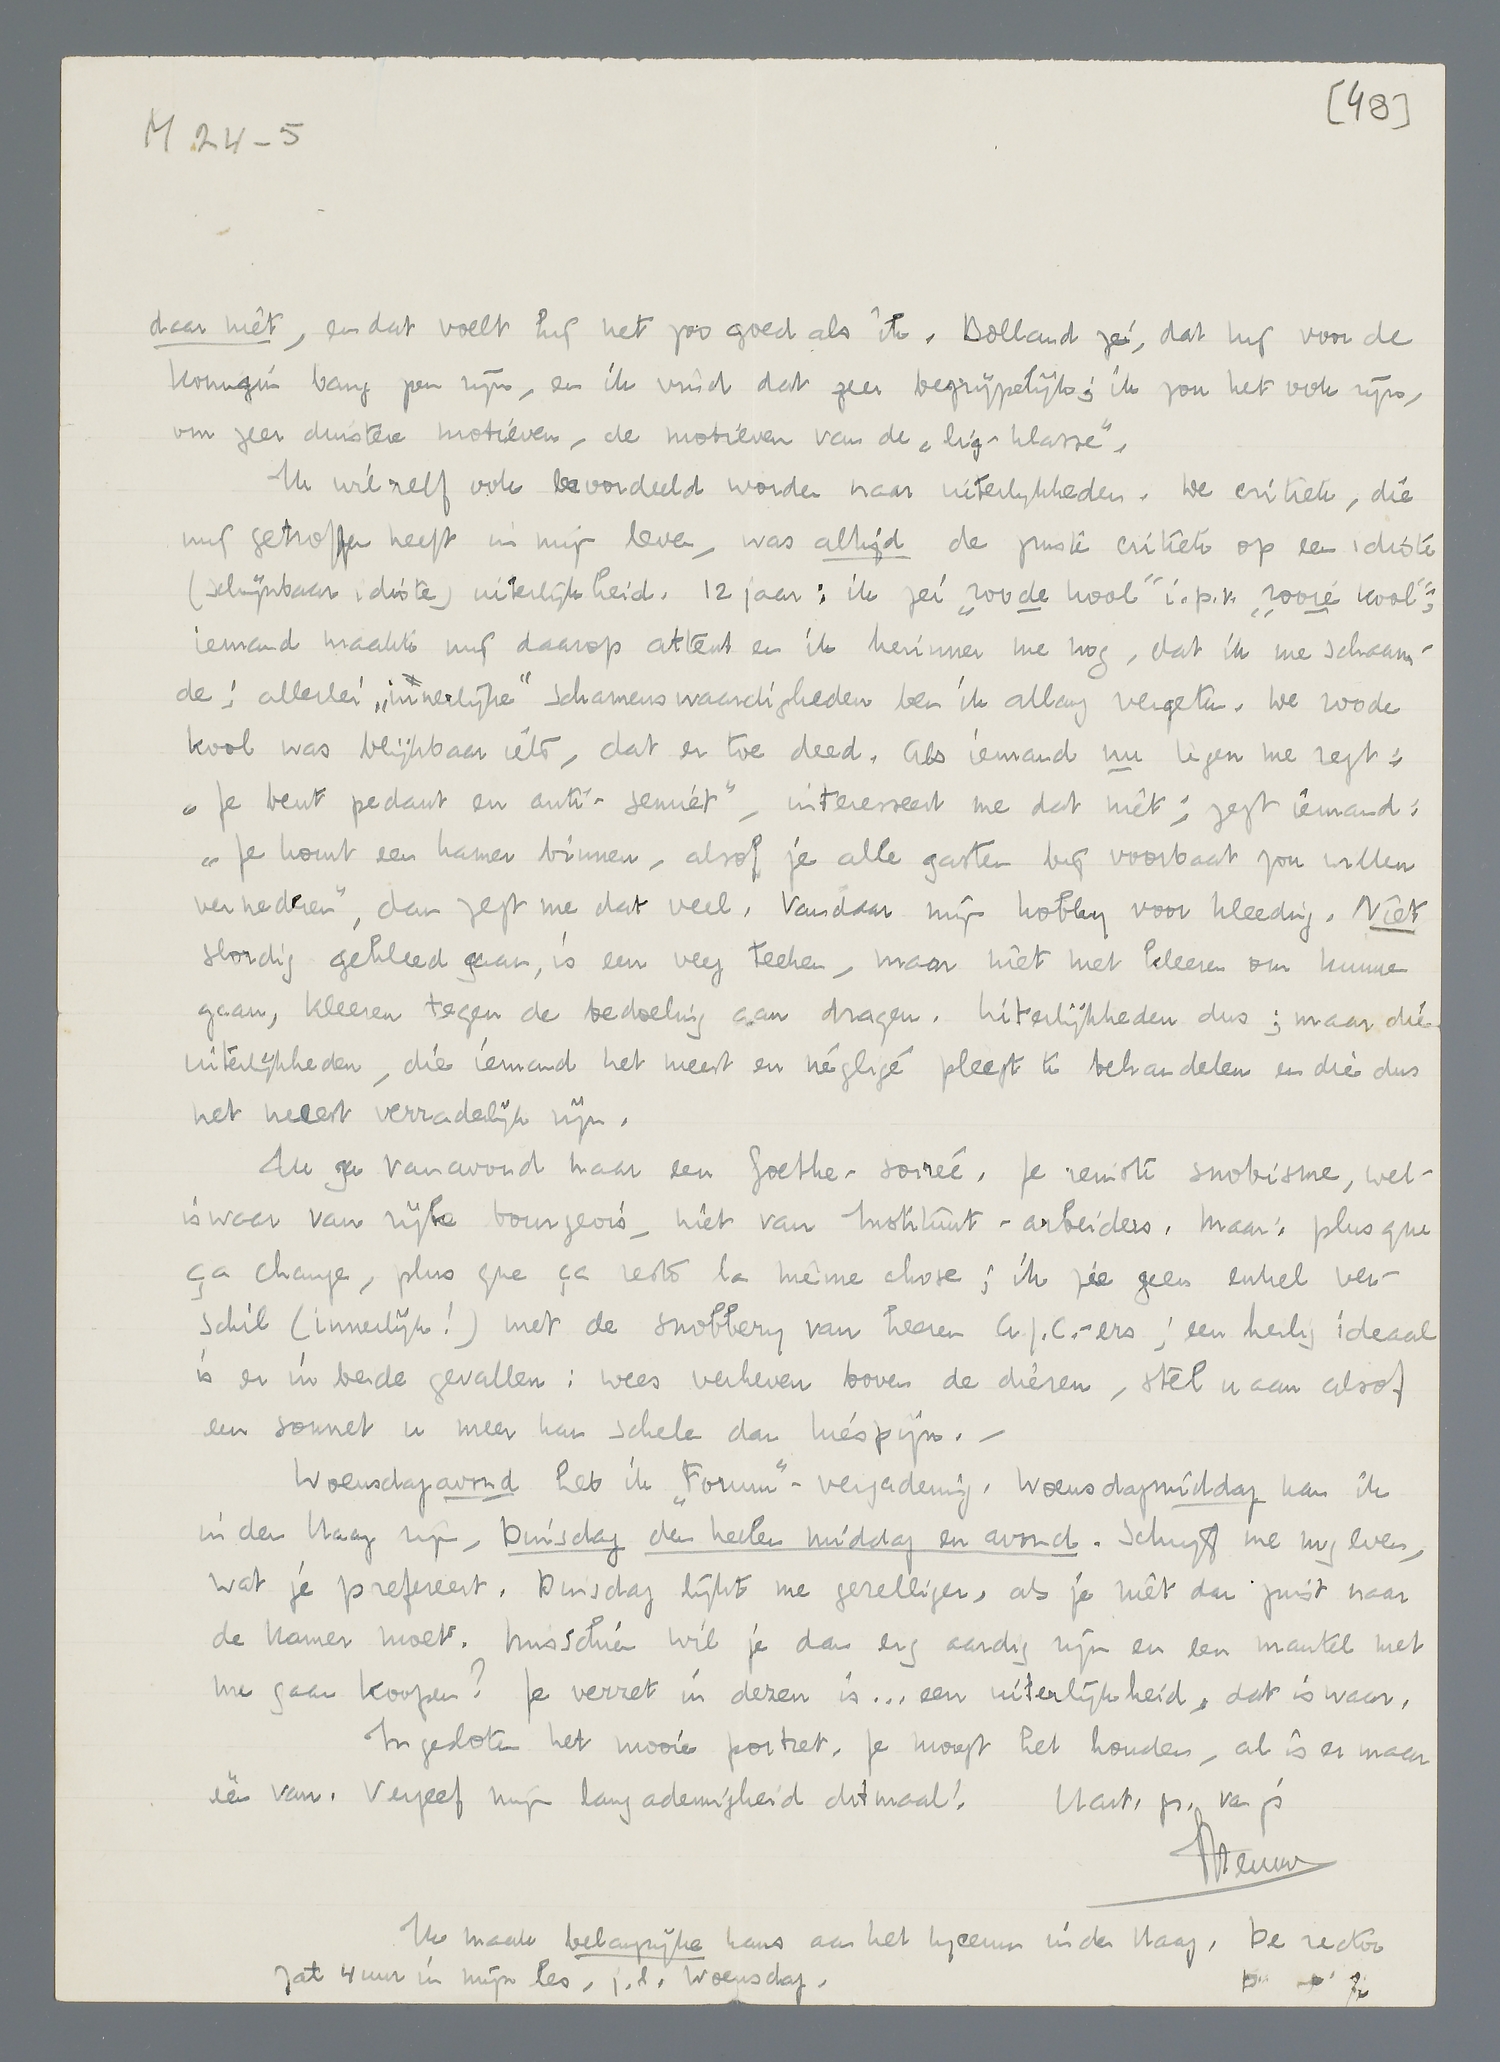 [48]
M 24-5
daar niet, en dat voelt hij net zoo goed als ik. Bolland zei, dat hij voor de
koningin bang zou zijn, en ik vind dat zeer begrijpelijk; ik zou het ook zijn,
om zeer duistere motieven, de motieven van de „lig-klasse".
Ik wil zelf ook beoordeeld worden naar uiterlijkheden. De critiek, die
mij getroffen heeft in mijn leven, was altijd de juiste critiek op een idiote
(schijnbaar idiote) uiterlijkheid. 12 jaar: ik zei „roode kool" i.p.v. „rooie kool";
iemand maakte mij daarop attent en ik herinner me nog, dat ik me schaam-
de; allerlei „innerlijke" schamenswaardigheden ben ik allang vergeten. De roode
kool was blijkbaar iets, dat er toe deed. Als iemand nu tegen me zegt:
„Je bent pedant en anti-semiet", interesseert me dat niet; zegt iemand:
„Je komt een kamer binnen, alsof je alle gasten bij voorbaat zou willen
vernederen", dan zegt me dat veel. Vandaar mijn hobby voor kleeding. Niet
slordig gekleed gaan, is een veeg teeken, maar niet met kleeren om kunnen
gaan, kleeren tegen de bedoeling aan dragen. Uiterlijkheden dus; maar die
uiterlijkheden, die iemand het meest en négligé pleegt te behandelen en die dus
het meest verradelijk zijn.
Ik ga vanavond naar een Goethe-soireé. Je reinste snobisme, wel-
iswaar van rijke bourgeois, niet van Instituut-arbeiders. Maar: plus que
ça change, plus que ça reste la même chose; ik zie geen enkel ver-
schil (innerlijk!) met de snobbery van heeren A.J.C.-ers; een heilig ideaal
is er in beide gevallen: wees verheven boven de dieren, stel u aan alsof
een sonnet u meer kan schelen dan kiespijn. –
Woensdagavond heb ik „Forum"-vergadering. Woensdagmiddag kan ik
in den Haag zijn, Dinsdag den heelen middag en avond. Schrijf me nog even,
wat je prefereert. Dinsdag lijkt me gezelliger, als je niet dan juist naar
de Kamer moet. Misschien wil je dan erg aardig zijn en een mantel met
me gaan koopen? Je verzet in dezen is... een uiterlijkheid, dat is waar.
Ingesloten het mooie portret. Je moogt het houden, al is er maar
één van. Vergeef mijn langademigheid ditmaal! Hart. gr. van je
Menno
Ik maak belangrijke kans aan het lyceum in den Haag. De rector
zat 4 uur in mijn les, j.l. Woensdag.